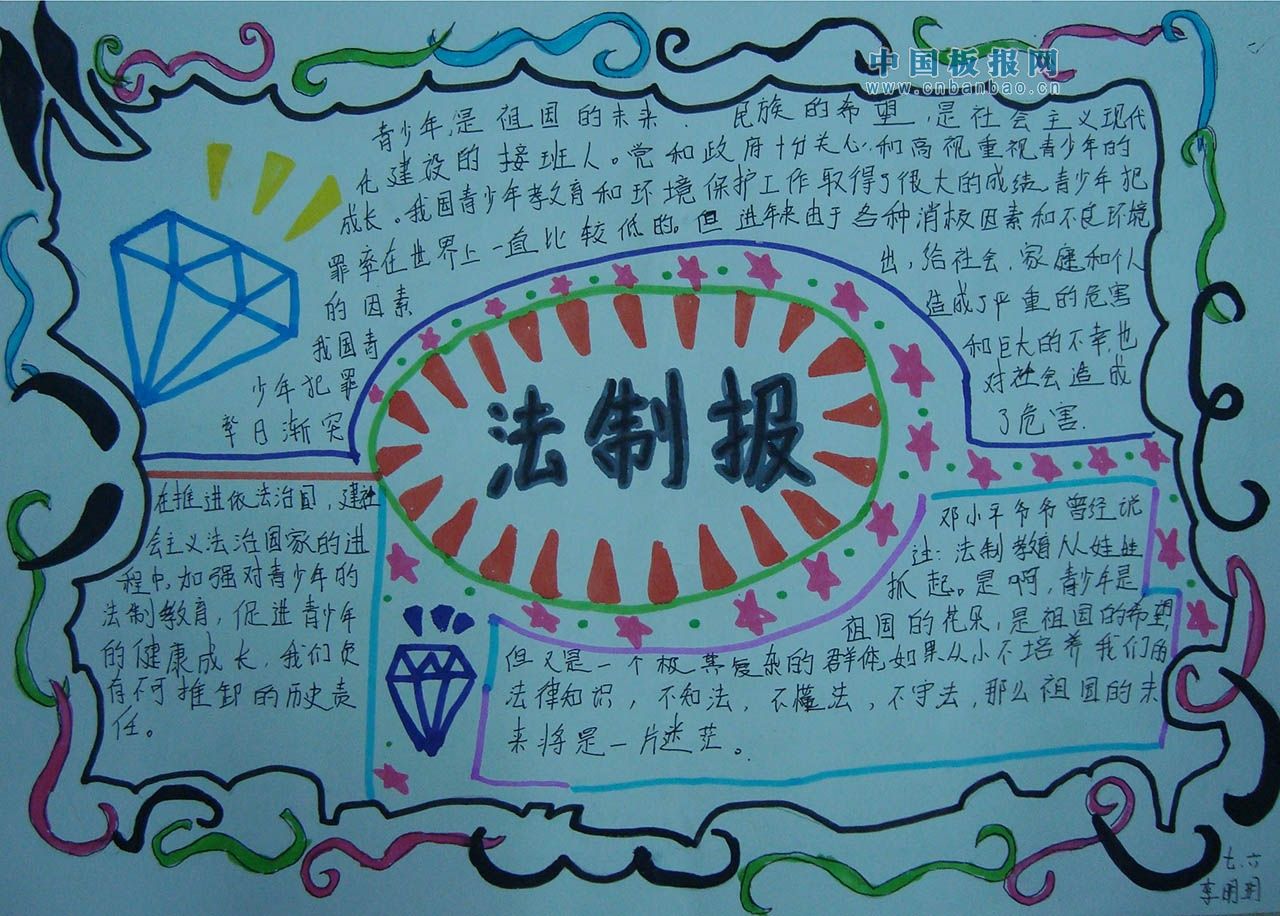 中国板报网
www.cnbanbao.cn
青少年,是祖国的未来.民族的希望,是社会主义现代
化建设的接班人。党和政府十分关心和高视重视青少年的
成长。我国青少年教育和环境保护工作取得了很大的成绩.青少年犯
罪率在世界上一直比较低的。但进年来由于各种消极因素和不良环境
的因素
我国青
少年犯罪
率日渐突
出,给社会.家庭和个人
造成了严重的危害
和巨大的不幸,也
对社会造成
了危害.
法制报
在推进依法治国,建社
会主义法治国家的进
程中,加强对青少年的
法制教育,促进青少年
的健康成长,我们负
有不可推卸的历史责
任。
邓小平爷爷曾经说
过:法制教育从娃娃
抓起。是啊,青少年是
祖国的花朵,是祖国的希望
但又是一个极其复杂的群体,如果从小不培养我们的
法律知识,不知法,不懂法,不守法,那么祖国的未
来将是一片迷茫。
七.六
李明明